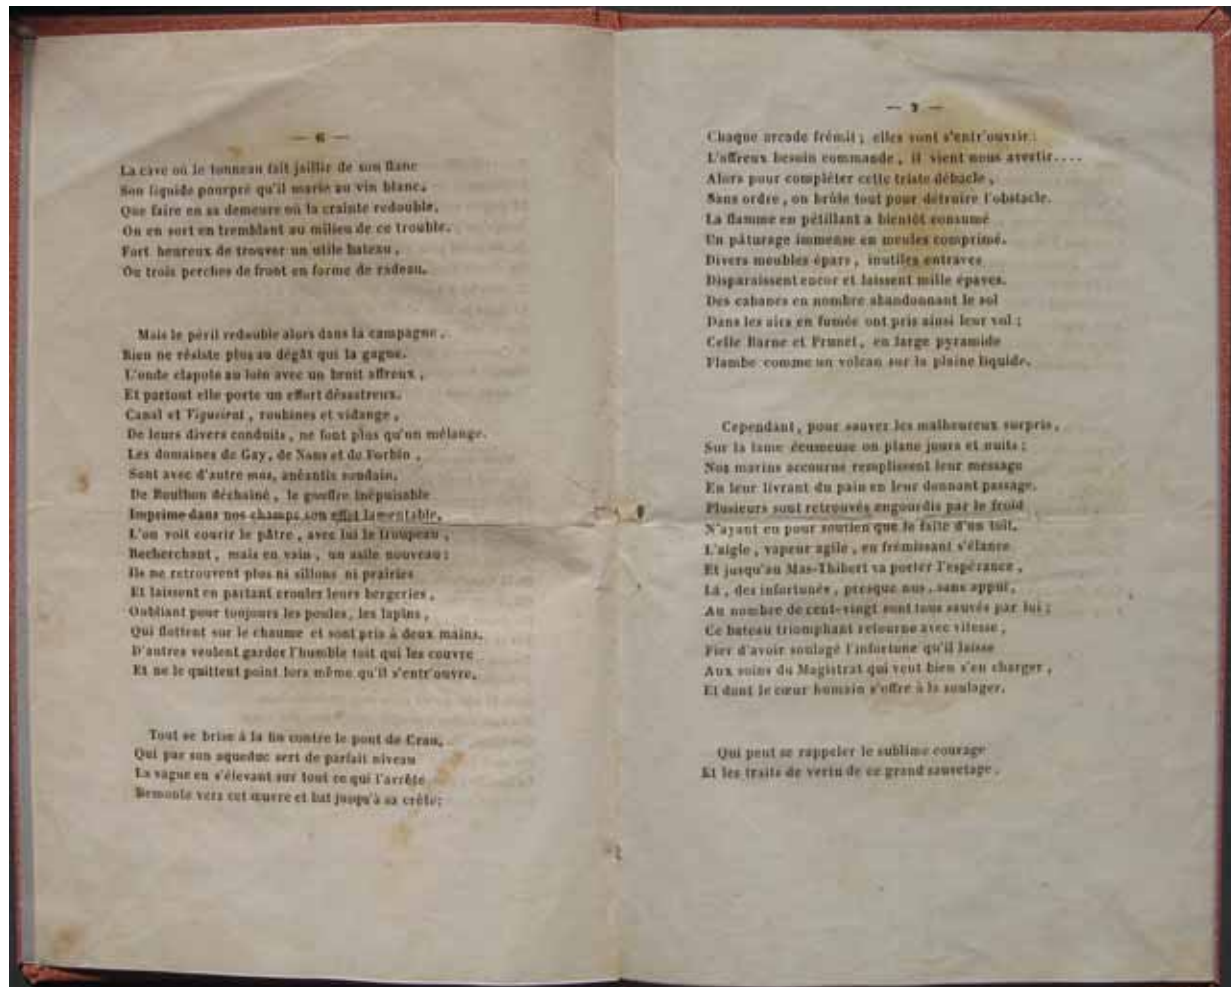 — 6 —
La cave où le tonneau fait jaillir de son flanc
Son liquide pourpré qu'il marie au vin blanc.
Que faire en sa demeure où la crainte redouble,
On en sort en tremblant au milieu de ce trouble.
Fort heureux de trouver un utile bateau,
Ou trois perches de front en forme de radeau.
Mais le péril redouble alors dans la campagne,
Rien ne résiste plus au dégât qui la gagne.
L'onde clapote au loin avec un bruit affreux,
Et partout elle porte un effort désastreux.
Canal et Vigueirat, roubines et vidange,
De leurs divers conduits, ne font plus qu'un mélange.
Les domaines de Gay, de Nans et de Forbin,
Sont avec d'autre mas, anéantis soudain.
De Boulbon déchainé, le gouffre inépuisable
Imprime dans nos champs son effet lamentable,
L'on voit courir le pâtre, avec lui le troupeau,
Recherchant, mais en vain, un asile nouveau;
Ils ne retrouvent plus ni sillons ni prairies
Et laissent en partant crouler leurs bergeries,
Oubliant pour toujours les poules, les lapins,
Qui flottent sur le chaume et sont pris à deux mains.
D'autres veulent garder l'humble toit qui les couvre
Et ne le quittent point lors même qu'il s'entr'ouvre.
Tout se brise à la fin contre le pont de Crau,
Qui par son aqueduc sert de parfait niveau
La vague en s'élevant sur tout ce qui l'arrête
Remonte vers cet œuvre et bat jusqu'à sa crête;
— 7 —
Chaque arcade frémit; elles vont s'entr'ouvrir:
L'affreux besoin commande, il vient nous avertir....
Alors pour compléter cette triste débacle,
Sans ordre, on brûle tout pour détruire l'obstacle.
La flamme en pétillant a bientôt consumé
Un pâturage immense en meules comprimé.
Divers meubles épars, inutiles entraves
Disparaissent encor et laissent mille épaves.
Des cabanes en nombre abandonnant le sol
Dans les airs en fumée ont pris ainsi leur vol;
Celle Barne et Prunet, en large pyramide
Flambe comme un volcan sur la plaine liquide.
Cependant, pour sauver les malheureux surpris,
Sur la lame écumeuse on plane jours et nuits;
Nos marins accourus remplissent leur message
En leur livrant du pain en leur donnant passage.
Plusieurs sont retrouvés engourdis par le froid
N'ayant eu pour soutien que le faîte d'un toit.
L'aigle, vapeur agile, en frémissant s'élance
Et jusqu'au Mas-Thibert va porter l'espérance,
Là, des infortunés, presque nus, sans appui,
Au nombre de cent-vingt sont tous sauvés par lui;
Ce bateau triomphant retourne avec vitesse,
Fier d'avoir soulagé l'infortune qu'il laisse
Aux soins du Magistrat qui veut bien s'en charger,
Et dont le cœur humain s'offre à la soulager.
Qui peut se rappeler le sublime courage
Et les traits de vertu de ce grand sauvetage,